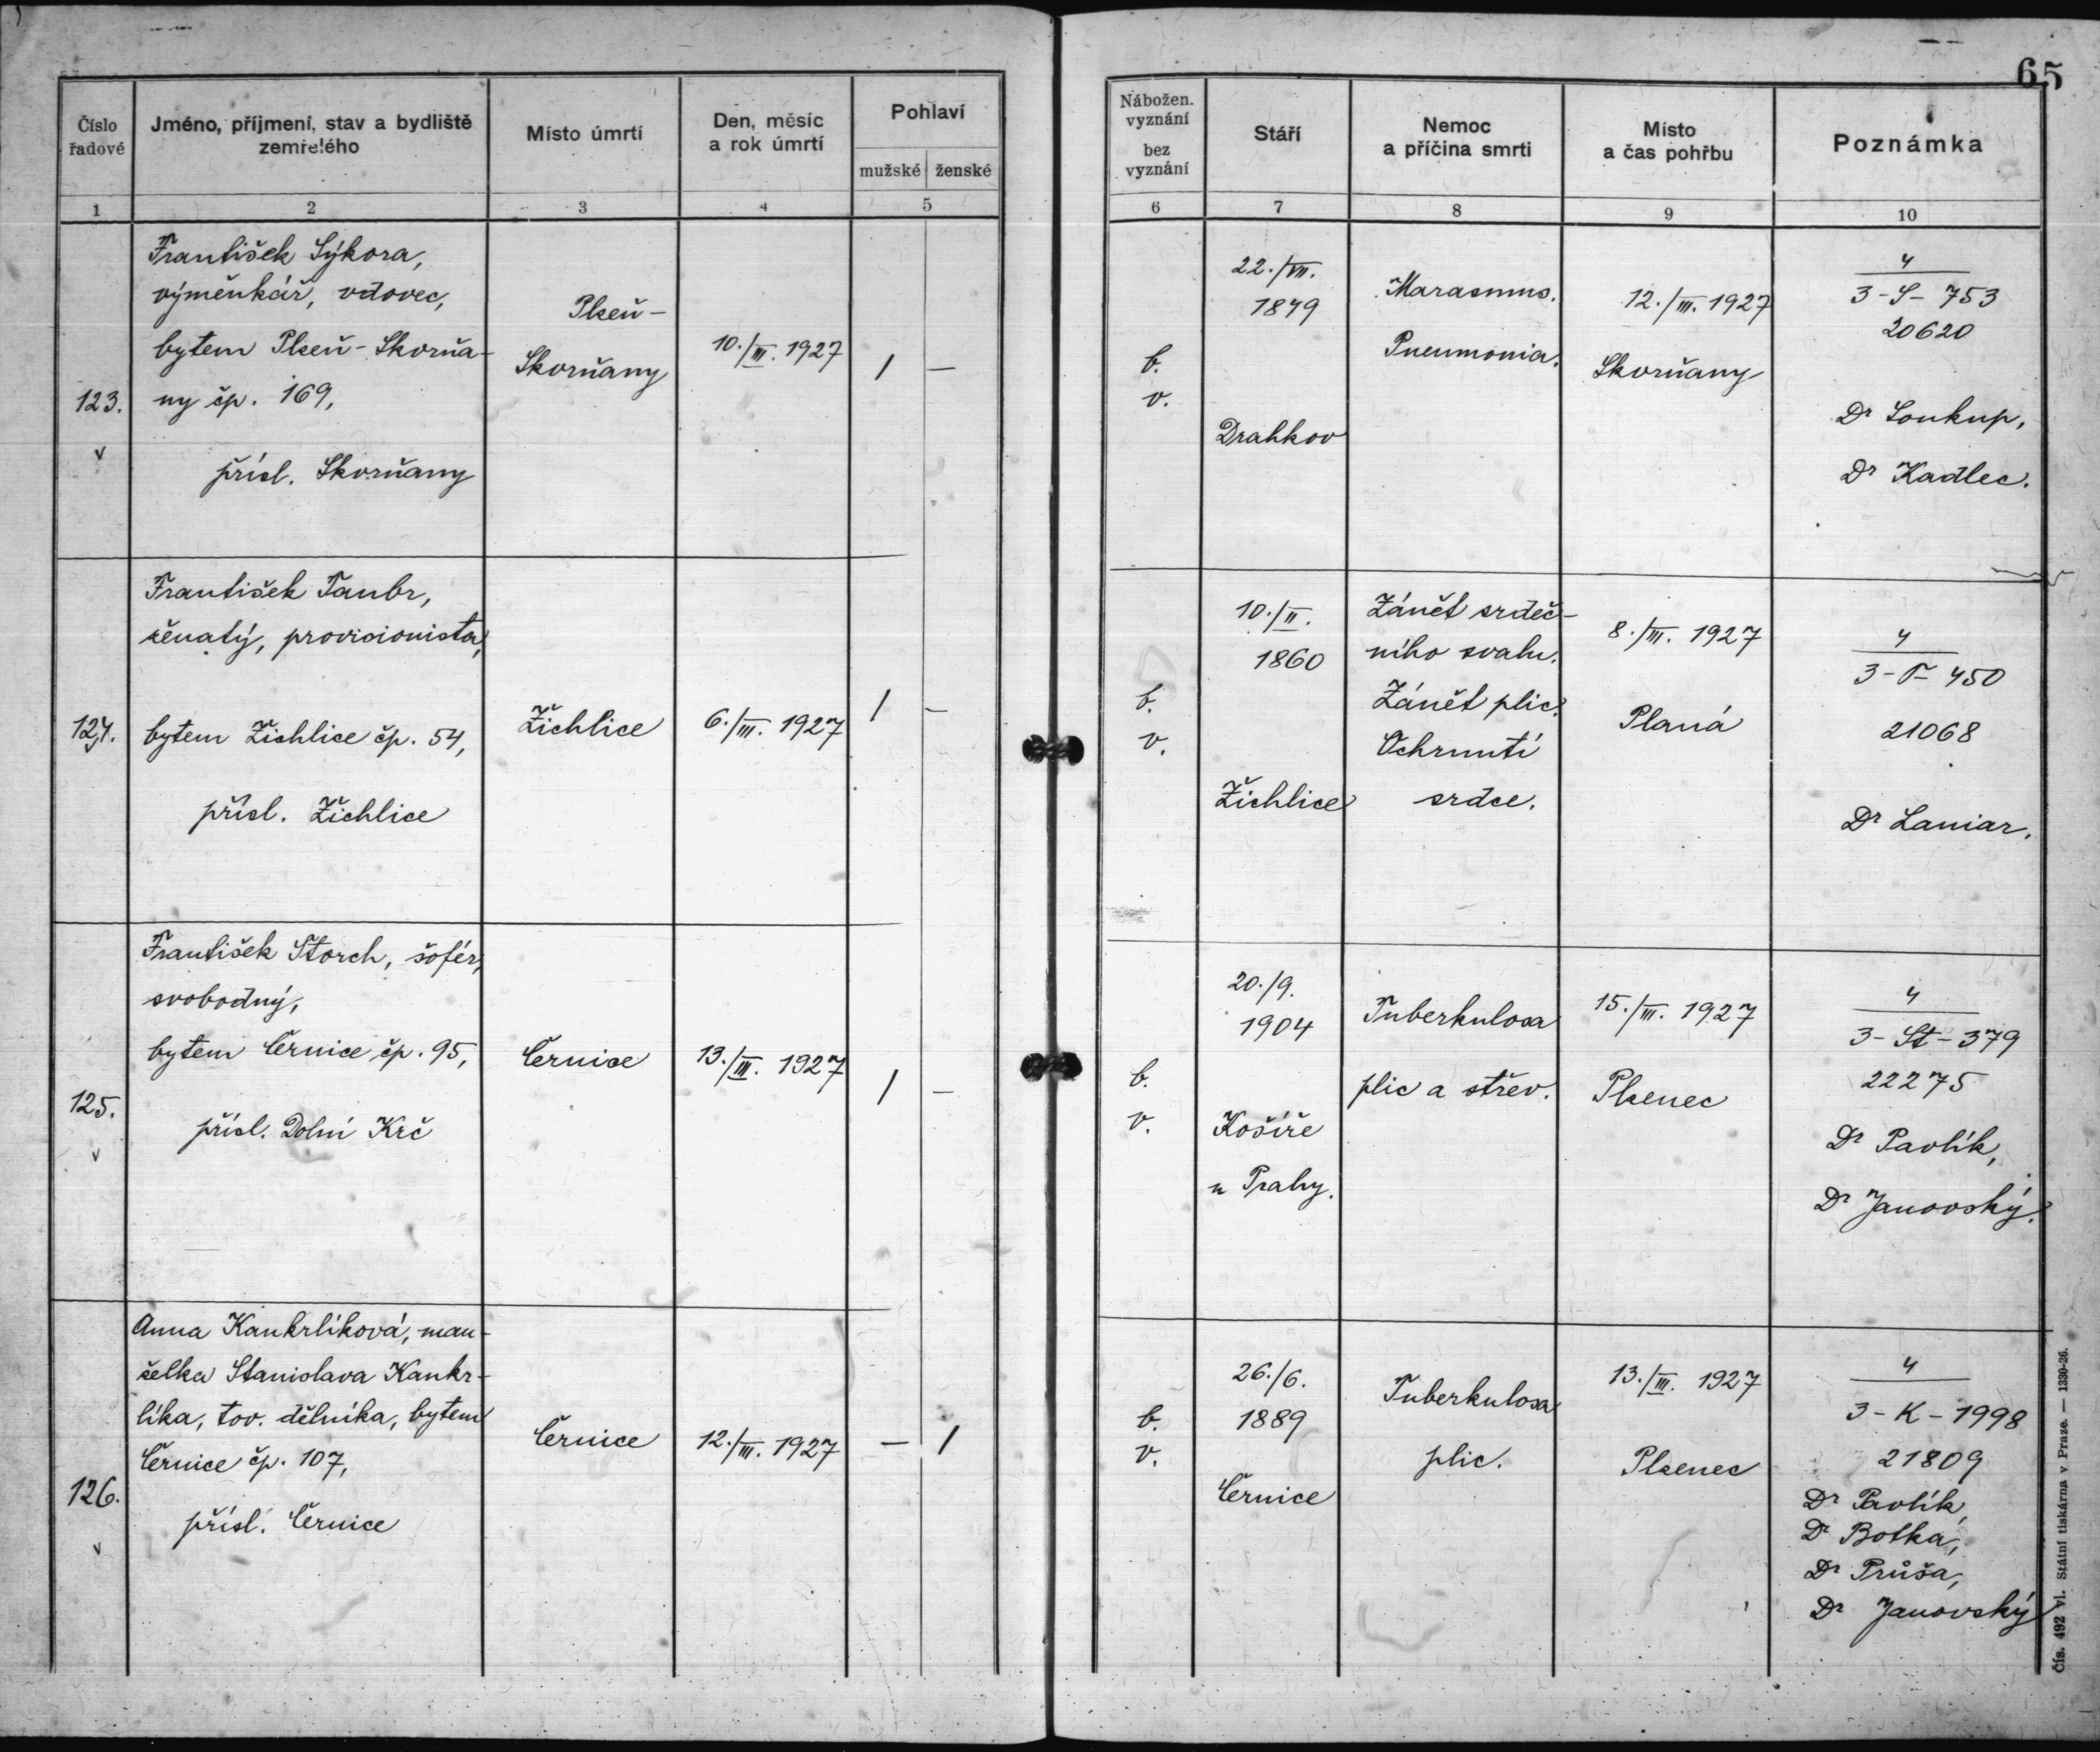 65
Číslo řadové
Jméno, příjmení, stav a bydliště zemřelého
Místo úmrtí
Den, měsíc a rok úmrtí
Pohlaví
mužské ženské
Nábožen. vyznání
bez vyznání
Stáří
Nemoc a příčina smrti
Místo a čas pohřbu
Poznámka
1 2 3 4 5 6 7 8 9 10
123.
v
František Sýkora,
výměnkář, vdovec,
bytem Plzeň - Skvrňa-
ny čp. 169,
přísl. Skvrňany
Plzeň -
Skvrňany
10./III. 1927
/ —
b.
v.
22./VII.
1849
Drahkov
Marasmus.
Pneumonia.
12./III. 1927
Skvrňany
4
3 - S - 753
20620
Dr Soukup,
Dr Kadlec.
124.
František Taubr,
ženatý, provisionista,
bytem Žichlice čp. 54,
přísl. Žichlice
Žichlice
6./III. 1927
/ —
b.
v.
10./II.
1860
Žichlice
Zánět srdeč-
ního svalu.
Zánět plic.
Ochrnutí
srdce.
8./III. 1927
Planá
4
3 - T - 450
21068
Dr Laniar.
125.
v
František Štorch, šofér,
svobodný,
bytem Černice čp. 95,
přísl. Dolní Krč
Černice
13./III. 1927
/ —
b.
v.
20./9.
1904
Košíře
u Prahy.
Tuberkulosa
plic a střev.
15./III. 1927
Plzenec
4
3 - Št - 379
22275
Dr Pavlík,
Dr Janovský.
126.
v
Anna Kankrlíková, man-
želka Stanislava Kankr-
líka, tov. dělníka, bytem
Černice čp. 107,
přísl. Černice
Černice
12./III. 1927
— /
b.
v.
26./6.
1889
Černice
Tuberkulosa
plic.
13./III. 1927
Plzenec
4
3 - K - 1998
21809
Dr Pavlík,
Dr Botka,
Dr Průša,
Dr Janovský
Čís. 492 vl. Státní tiskárna v Praze. — 1330-26.